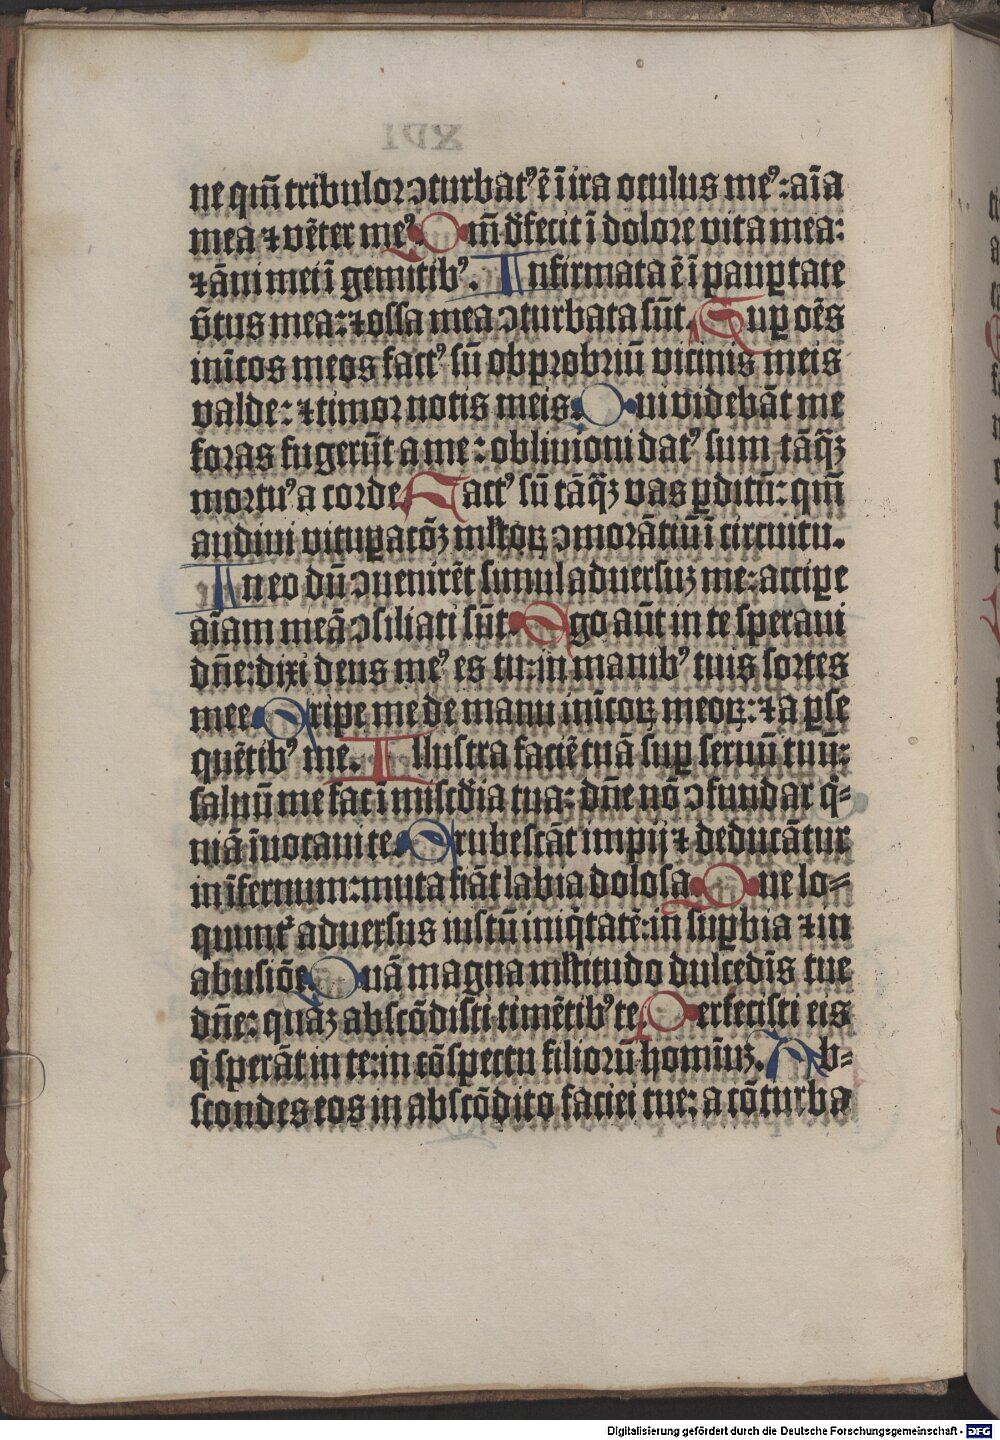 ne qm̄ tribulor ↄturbatꝰ ē ī ira oculus meꝰ: aīa
mea ⁊ vēter meꝰ. Qm̄ dʼfecit ī dolore vita mea:
⁊ āni mei ī gemitibꝰ. Infirmata ē ī paup̱tate
v̄tus mea: ⁊ ossa mea ↄturbata sūt. Sup̱ oēs
inīcos meos factꝰ sū obprobriū vicinis meis
valde: ⁊ timor notis meis. Qui videbāt me
foras fugerūt a me: obliuioni datꝰ sum tāq̄ꝫ
mortuꝰ a corde. Factꝰ sū tāq̄ꝫ vas ꝑditū: qm̄
audiui vituꝑacōꝫ mĺtoꝝ ↄmorātiū ī circuitu.
In eo dū ↄuenirēt simul aduersuꝫ me: accipe
aīam meā ↄsiliati sūt. Ego aūt in te speraui
dn̄e: dixi deus meꝰ es tu: in manibꝰ tuis sortes
mee. Eripe me de manu inīcoꝝ meoꝝ: ⁊ a ꝑse
quētibꝰ me. Illustra faciē tuā suꝑ seruū tuū:
saluū me fac ī mīscd̄ia tua: dn̄e nō ↄfundar q̄-
niā īuocaui te. Erubescāt impij ⁊ deducātur
in īfernum: muta fiāt labia dolosa. Que lo-
quunt᷑ aduersus iustū iniq̄tatē: in suꝑbia ⁊ in
abusiōe. Quā magna mĺtitudo dulcedīs tue
dn̄e: quaꝫ abscōdisti timētibꝰ te. Perfecisti eis
q̄ sperāt in te: in cōspectu filiorū homīuꝫ. Ab-
scondes eos in abscōdito faciei tue: a cōturba
XVI
Digitalisierung gefördert durch die Deutsche Forschungsgemeinschaft - DFG